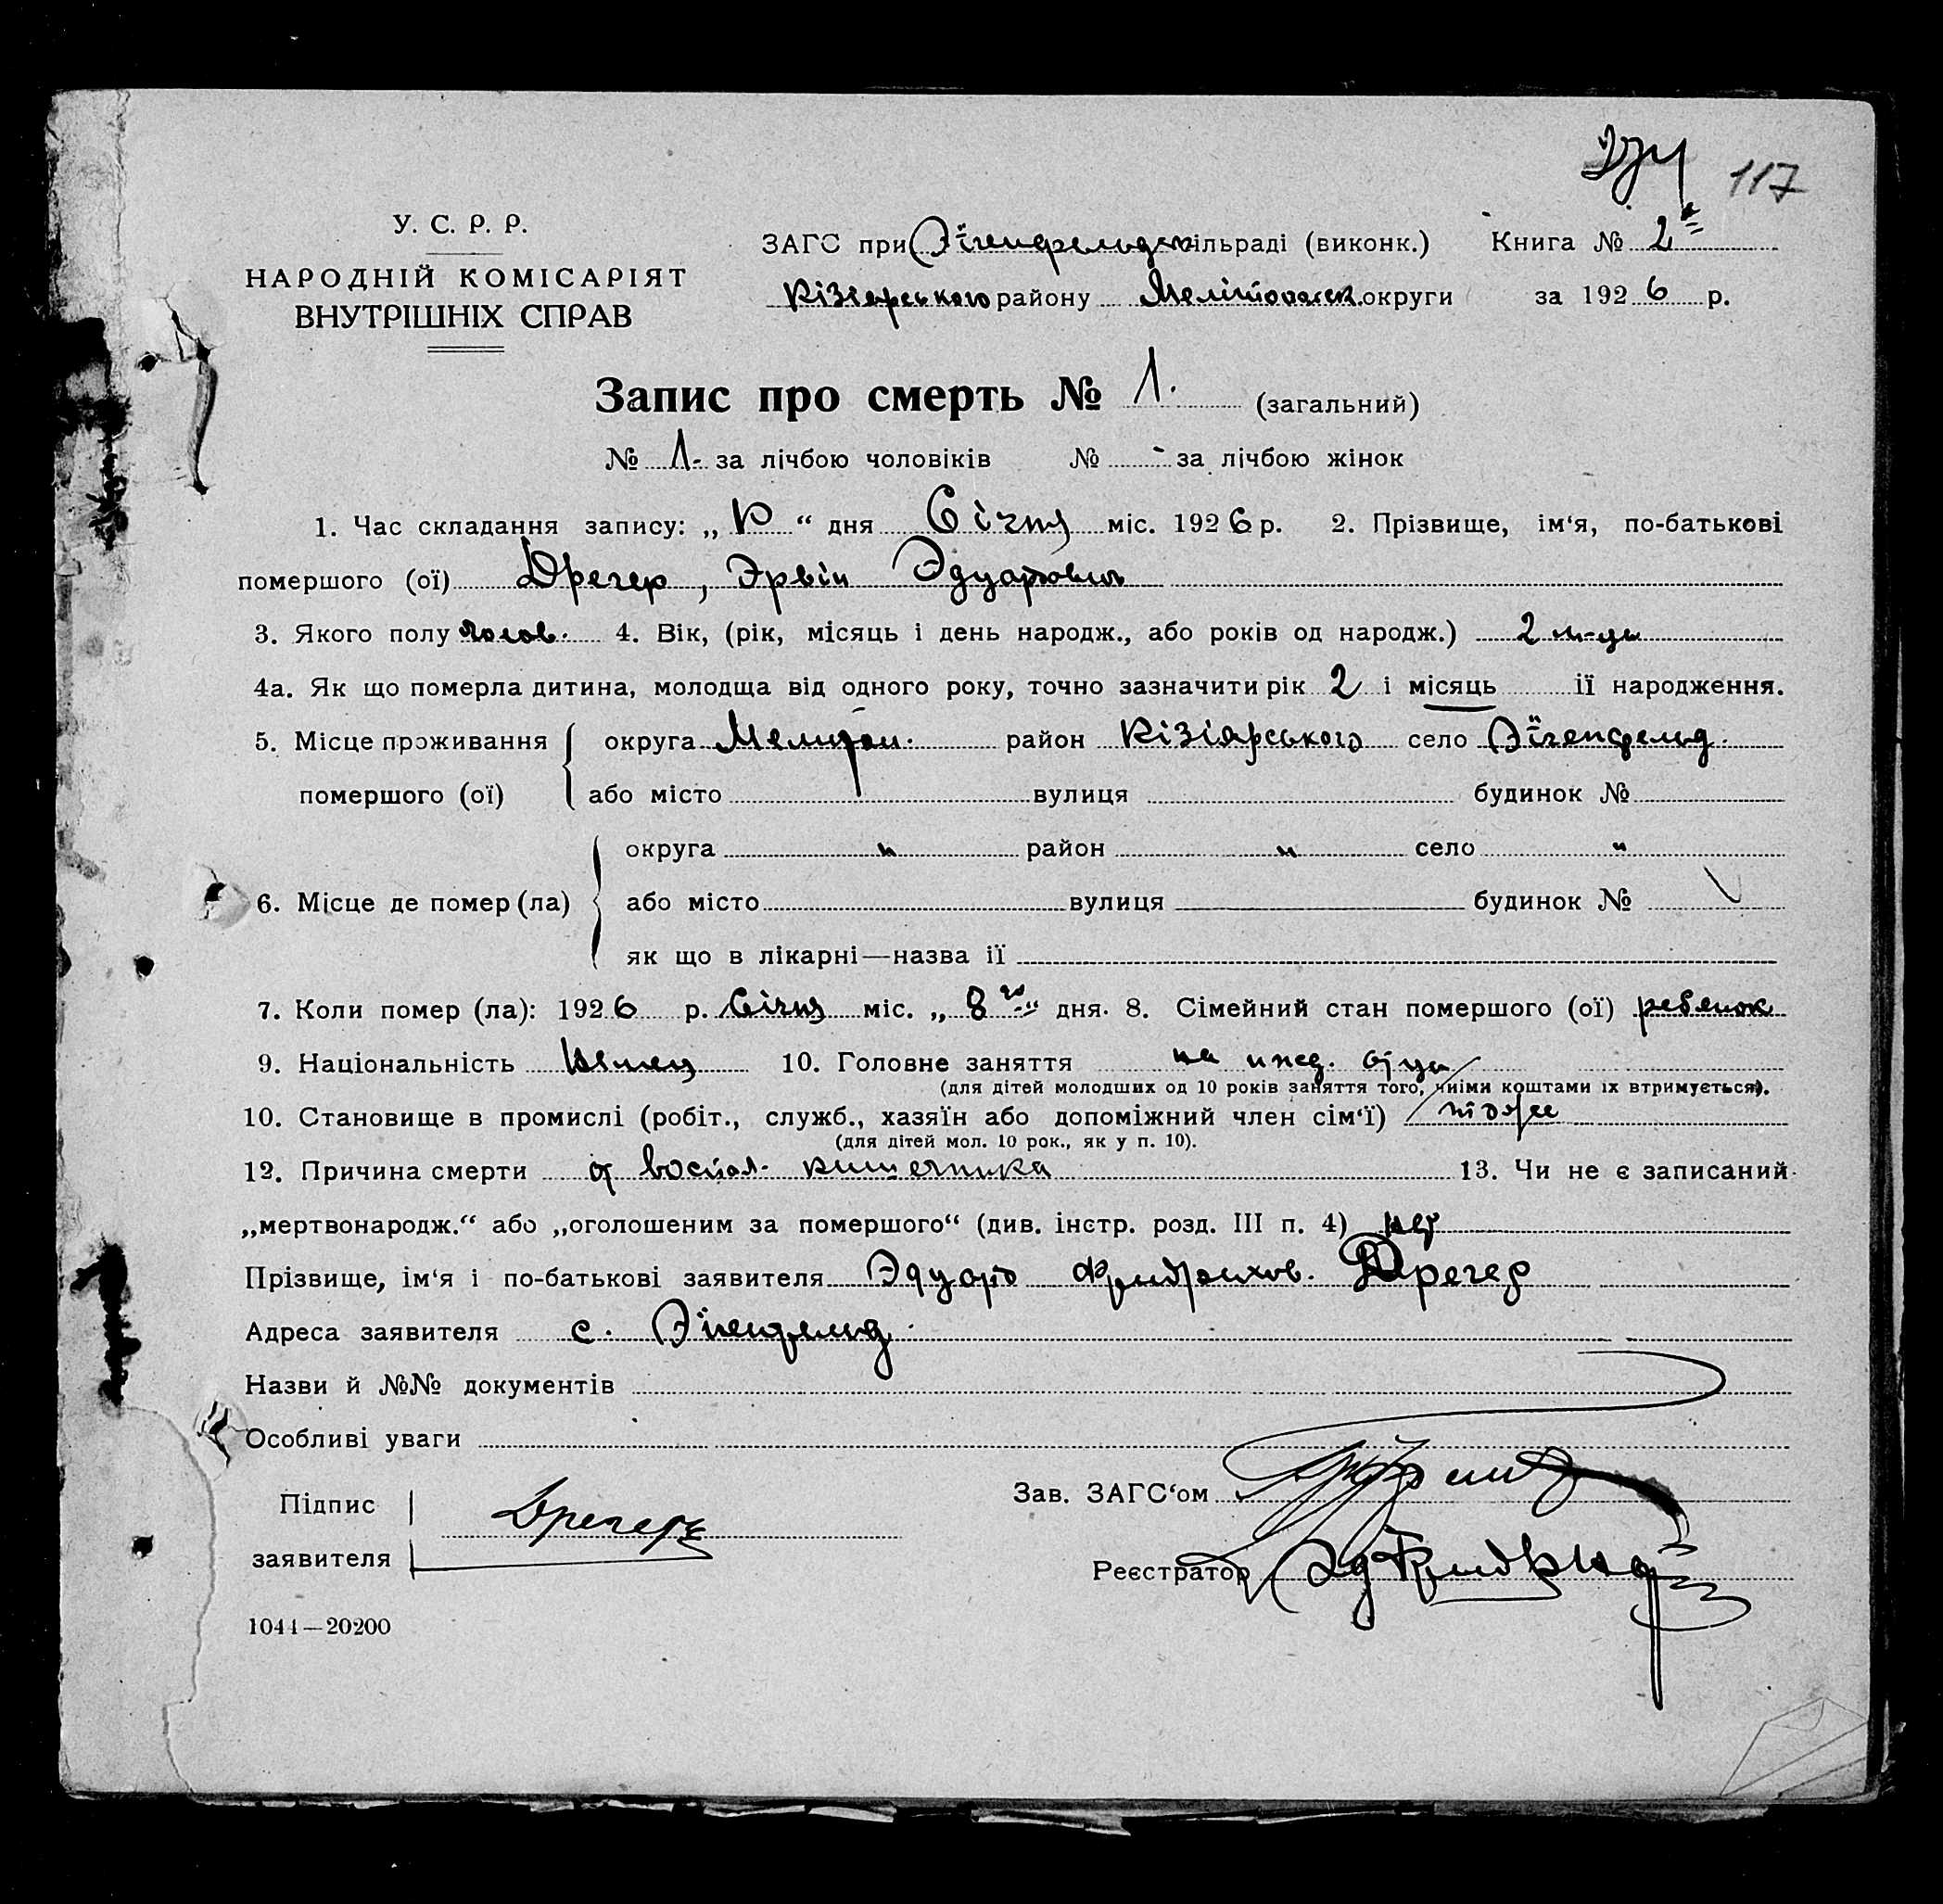 117
У. С. Р. Р.
НАРОДНІЙ КОМІСАРІЯТ
ВНУТРІШНІХ СПРАВ
ЗАГС при Эйгенфельдск. сільраді (виконк.) Книга № 2
Кізіярського району Мелітопольск. округи за 1926 р.
Запис про смерть № 1. (загальний)
№ 1. за лічбою чоловіків № - за лічбою жінок
1. Час складання запису: „ “ дня Січня міс. 1926 р. 2. Прізвище, ім‘я, по-батькові
помершого (ої) Дрегер, Эрвін Эдуардович
3. Якого полу чолов. 4. Вік, (рік, місяць і день народж., або років од народж.) 2 м-ця
4а. Як що померла дитина, молодща від одного року, точно зазначити рік 2 і місяць ії народження.
5. Місце проживання округа Мелітоп. район Кізіярського село Эйгенфельд.
помершого (ої) або місто вулиця будинок №
округа " район " село "
6. Місце де помер (ла) або місто вулиця будинок №
як що в лікарні—назва ії
7. Коли помер (ла): 1926 р. Січня міс. „ 8го “ дня. 8. Сімейний стан помершого (ої) ребенок
9. Національність Немец 10. Головне заняття на ижд. отца
(для дітей молодших од 10 років заняття того, чиїми коштами іх втримується).
10. Становище в промислі (робіт., служб., хазяїн або допоміжний член сім‘ї) тоже
(для дітей мол. 10 рок., як у п. 10).
12. Причина смерти от воспал. кишечника 13. Чи не є записаний
„мертвонародж.“ або „оголошеним за помершого“ (див. інстр. розд. III п. 4) нет
Прізвище, ім‘я і по-батькові заявителя Эдуард Фридрихов. Дрегер
Адреса заявителя с. Эйгенфельд.
Назви й №№ документів
Особливі уваги
Підпис
заявителя Дрегеръ
Зав. ЗАГС‘ом
Реєстратор
1044—20200